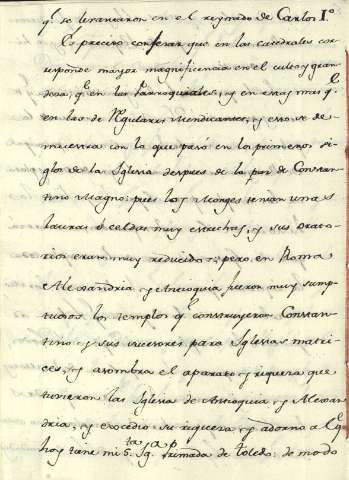 q.e se levantaron en el reynado de Carlos I.o
Es preciso confesar que en las catedrales cor-
responde mayor magnificencia en el culto y gran-
deza, q.e en las Parroquiales, y en estas mas q.e
en las de Regulares Mendicantes, y esto se de-
muestra con lo que pasó en los primeros si-
glos de la Iglesia despues de la paz de Constan-
tino Magno: pues los Monges tenian unas
lauras ó celdas muy estrechas, y sus orato-
rios eran muy reducidos; pero en Roma
Alexandria, y Antioquia fueron muy sump-
tuosos los templos q.e construyeron Constan-
tino y sus sucesores para Iglesias matri-
ces, y asombra el aparato y riqueza que
tuvieron las Iglesia de Antioquia, y Alexan-
dria, y excedio su riqueza y adorno a l q.e
hoy tiene mi S.ta Ig.a Primada de Toledo: de modo